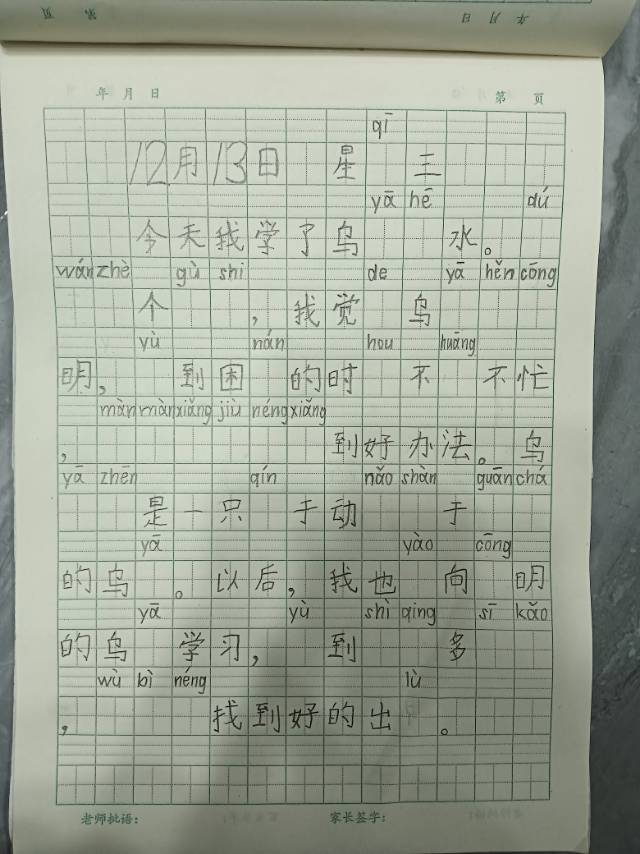 第 页 年 月 日
年 月 日 第 页
qī
12月13日 星 三
yā hē dú
今天我学了乌 水。
wán zhè gù shi de yā hěn cōng
个 ,我觉 乌
yù nán hou huāng
明, 到困 的时 不 不忙
màn màn xiǎng jiù néng xiǎng
, 到好办法。乌
yā zhēn qín nǎo shàn guān chá
是一只 于动 于
yā yào cōng
的乌 。以后,我也 向 明
yā yù shì qing sī kǎo
的乌 学习, 到 多
wù bì néng lù
, 找到好的出 。
老师批语: 家长签字: